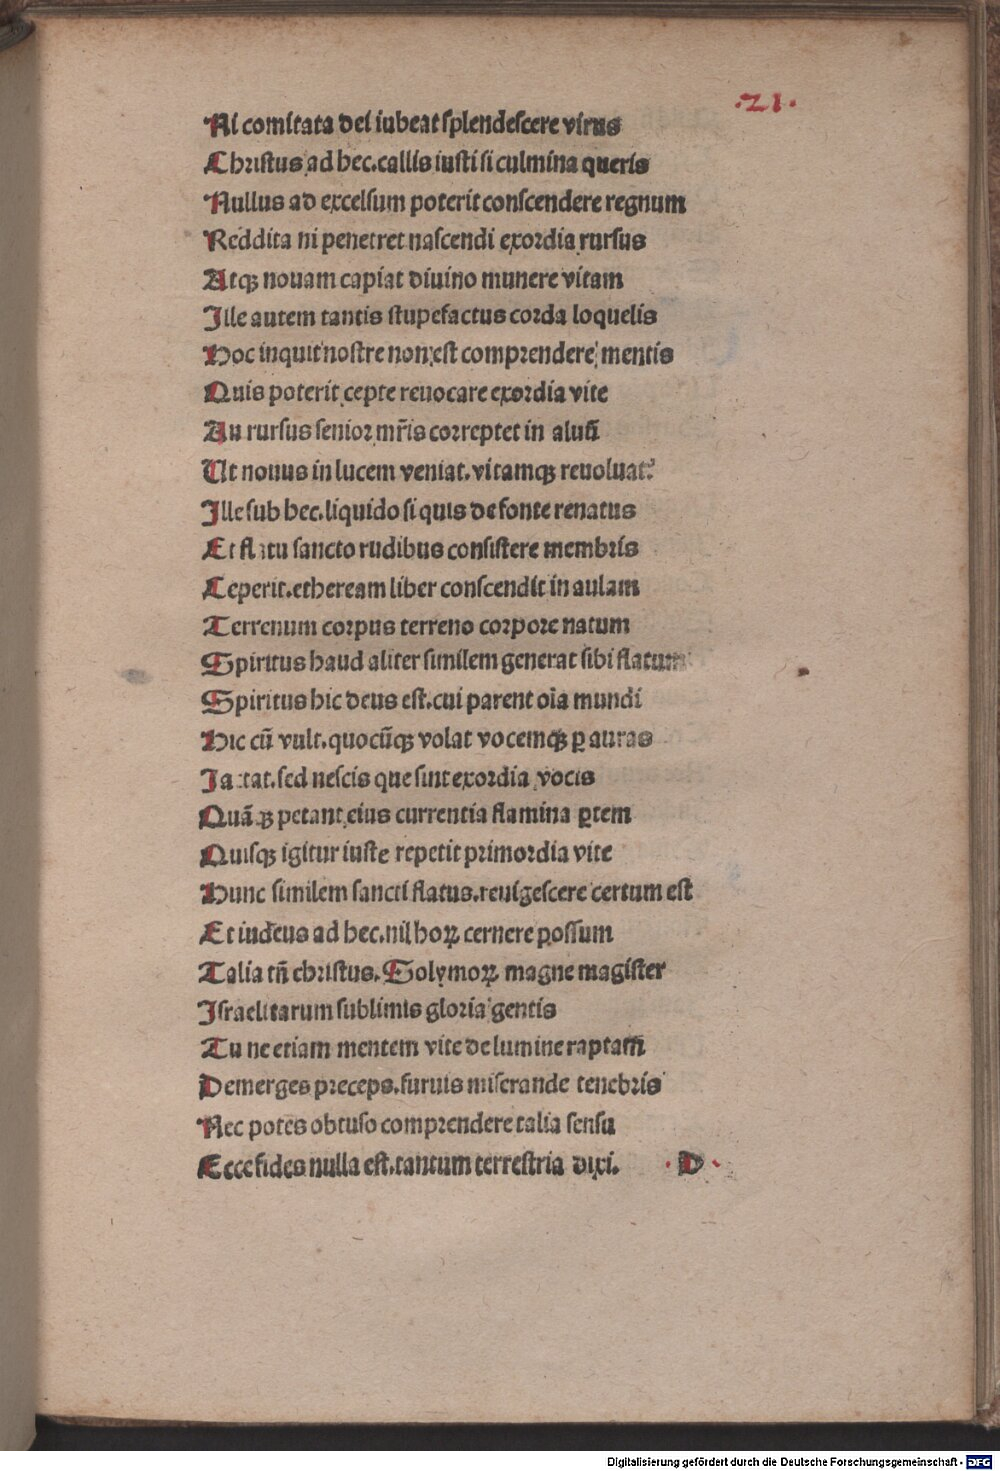 .21.
Ni comitata dei iubeat splendescere virus
Christus ad hec. callis iusti si culmina queris
Nullus ad excelsum poterit conscendere regnum
Reddita ni penetret nascendi exordia rursus
Atqꝫ nouam capiat diuino munere vitam
Ille autem tantis stupefactus corda loquelis
Hoc inquit nostre non est comprendere mentis
Quis poterit cepte reuocare exordia vite
An rursus senior mr̄is correptet in aluū
Ut nouus in lucem veniat. vitamqꝫ reuoluat?
Ille sub hec. liquido si quis de fonte renatus
Et flatu sancto rudibus consistere membris
Ceperit. etheream liber conscendit in aulam
Terrenum corpus terreno corpore natum
Spiritus haud aliter similem generat sibi flatum
Spiritus hic deus est. cui parent oīa mundi
Hic cū vult. quocūqꝫ volat vocemqꝫ ꝑ auras
Iactat. sed nescis que sint exordia vocis
Quā qꝫ petant eius currentia flamina ꝑtem
Quisqꝫ igitur iuste repetit primordia vite
Hunc similem sancti flatus. reuigescere certum est
Et iudeus ad hec. nil hoꝝ cernere possum
Talia tn̄ christus. Solymoꝝ magne magister
Israelitarum sublimis gloria gentis
Tu ne etiam mentem vite de lumine raptam
Demerges preceps. furuis miserande tenebris
Nec potes obtuso comprendere talia sensu
Ecce fides nulla est. tantum terrestria dixi. . D .
Digitalisierung gefördert durch die Deutsche Forschungsgemeinschaft - DFG